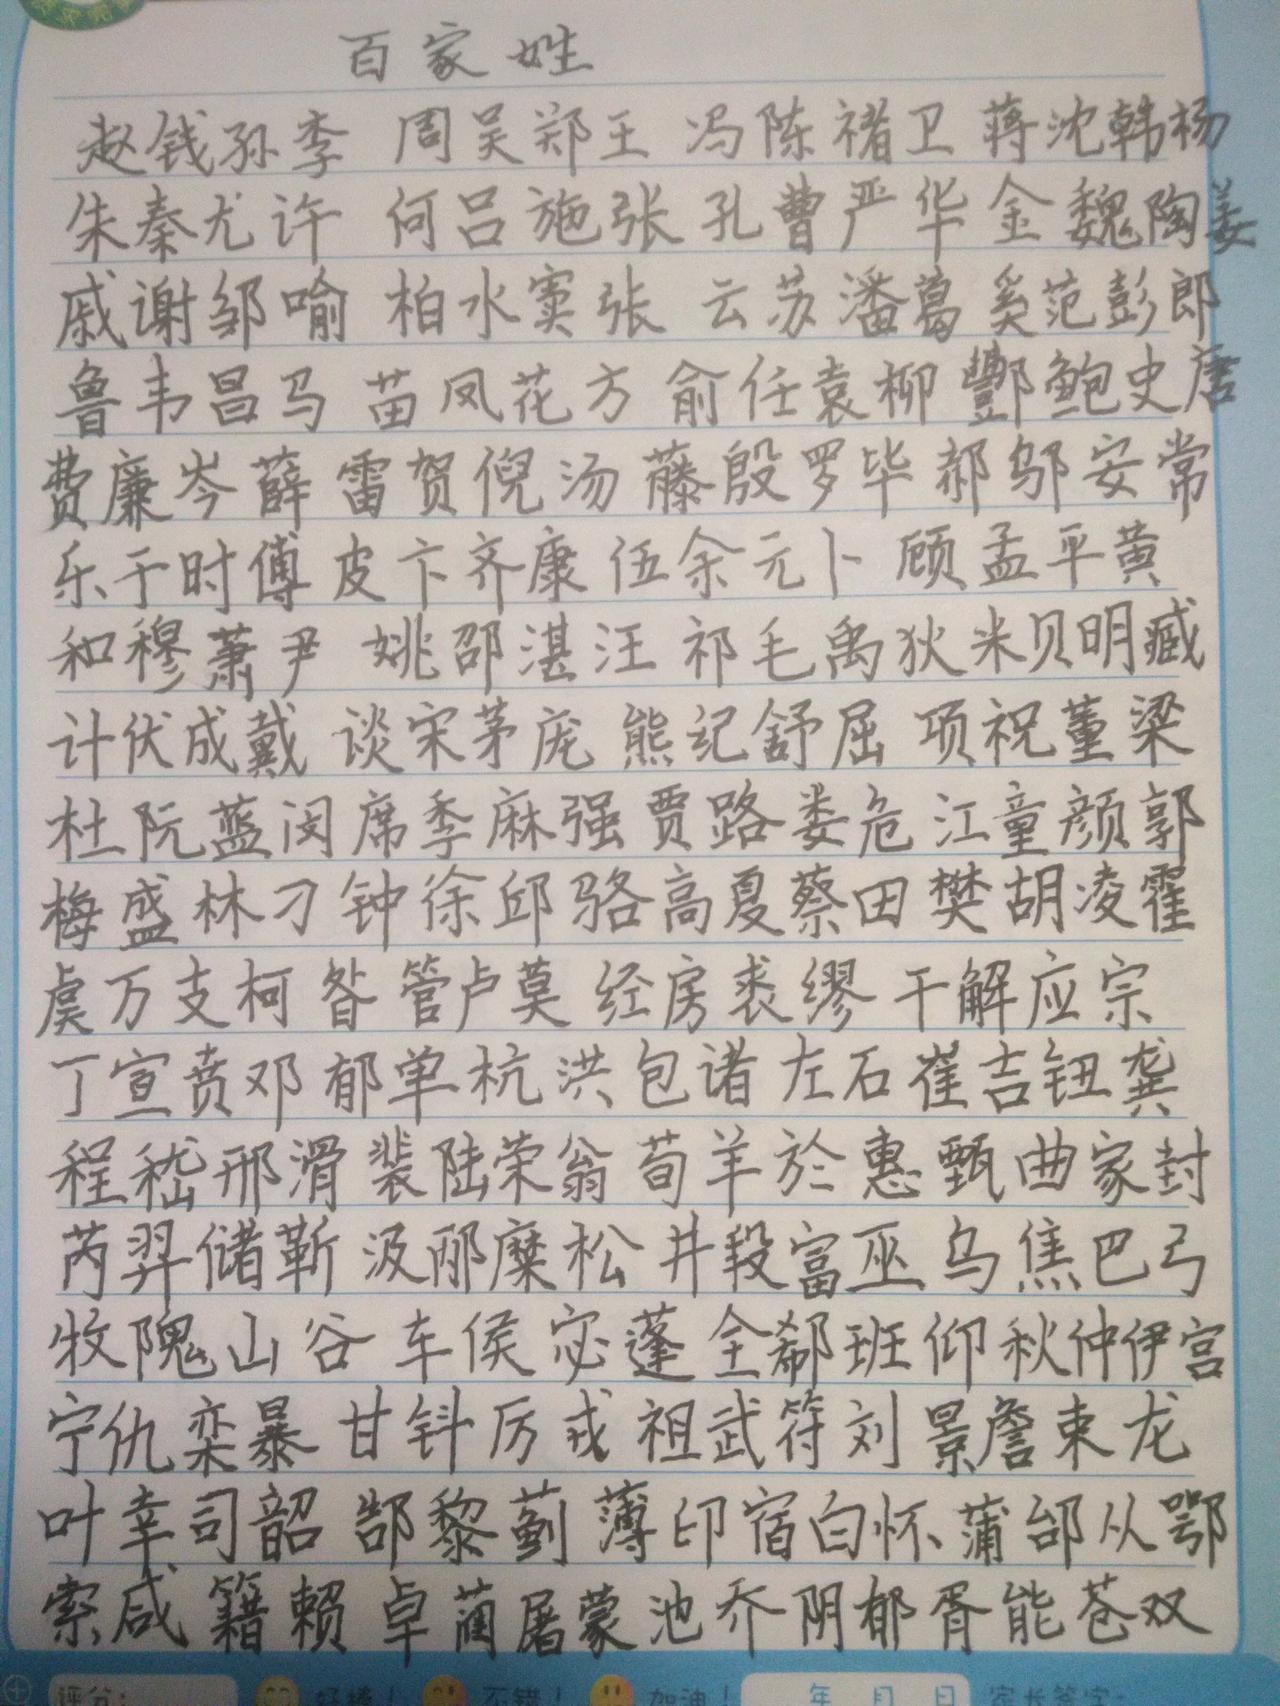 百家姓
赵钱孙李 周吴郑王 冯陈褚卫 蒋沈韩杨
朱秦尤许 何吕施张 孔曹严华 金魏陶姜
戚谢邹喻 柏水窦张 云苏潘葛 奚范彭郎
鲁韦昌马 苗凤花方 俞任袁柳 酆鲍史唐
费廉岑薛 雷贺倪汤 藤殷罗毕 郝邬安常
乐于时傅 皮卞齐康 伍余元卜 顾孟平黄
和穆萧尹 姚邵湛汪 祁毛禹狄 米贝明臧
计伏成戴 谈宋茅庞 熊纪舒屈 项祝董梁
杜阮蓝闵 席季麻强 贾路娄危 江童颜郭
梅盛林刁 钟徐邱骆 高夏蔡田 樊胡凌霍
虞万支柯 昝管卢莫 经房裘缪 干解应宗
丁宣贲邓 郁单杭洪 包诸左石 崔吉钮龚
程嵇邢滑 裴陆荣翁 荀羊於惠 甄曲家封
芮羿储靳 汲邴糜松 井段富巫 乌焦巴弓
牧隗山谷 车侯宓蓬 全郗班仰 秋仲伊宫
宁仇栾暴 甘钭厉戎 祖武符刘 景詹束龙
叶幸司韶 郜黎蓟薄 印宿白怀 蒲邰从鄂
索咸籍赖 卓蔺屠蒙 池乔阴郁 胥能苍双
评分: 好棒! 不错! 加油! 年 月 日 家长签字: